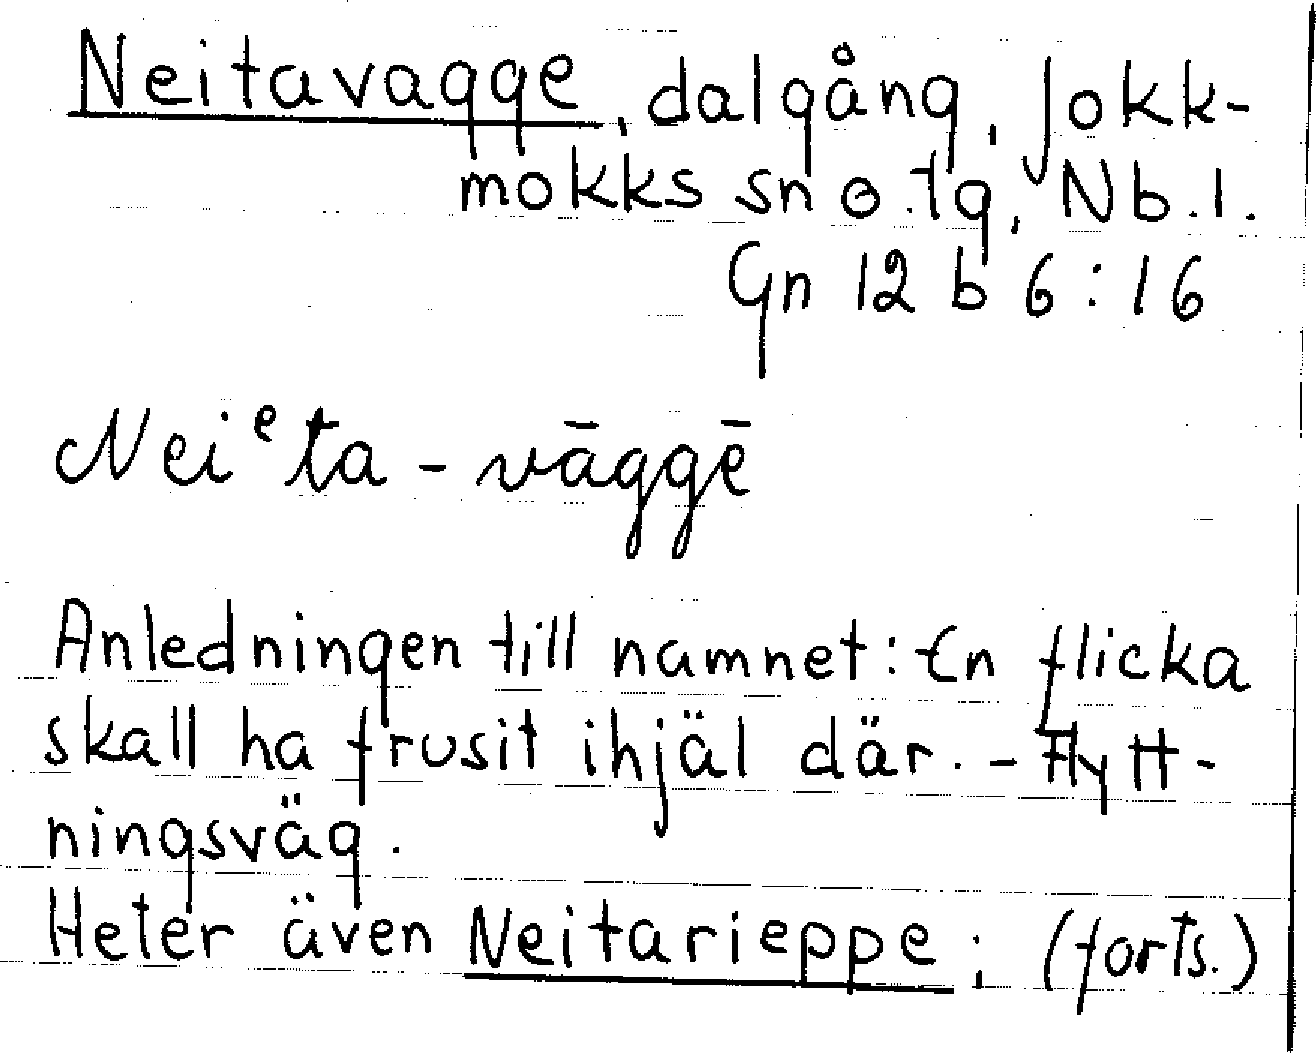 Neitavagge, dalgång, Jokk-
mokks sn o. tg, Nb. l.
Gn 12 b 6:16
Neiᵉta - vāggē
Anledningen till namnet: En flicka
skall ha frusit ihjäl där. - Flytt-
ningsväg.
Heter även Neitarieppe; (forts.)